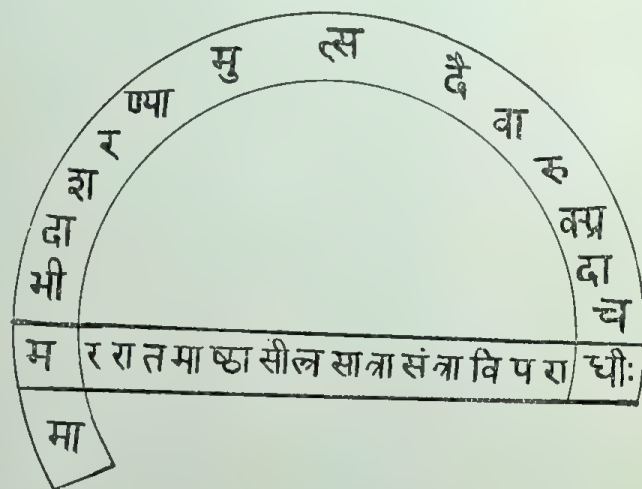 भी दा श र ण्या मु त्स दै वा रु क्प्र दा च
म र रा त मा ष्ठा सी त्र सा त्रा सं त्रा वि प रा धीः
मा